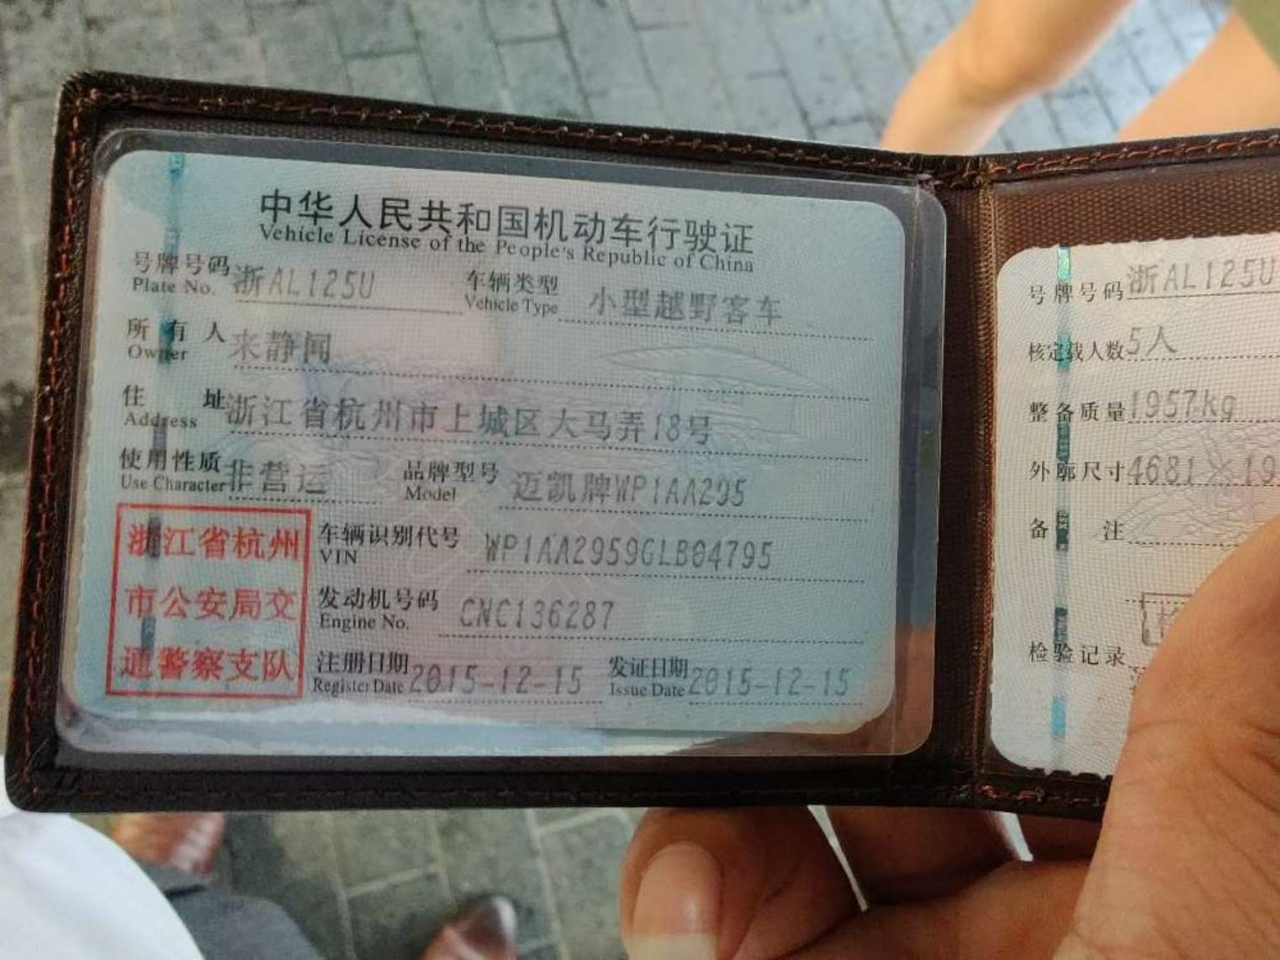 中华人民共和国机动车行驶证
Vehicle License of the People's Republic of China
号牌号码 浙AL125U 车辆类型 小型越野客车
Plate No. Vehicle Type
所有人 来静闻
Owner
住址 浙江省杭州市上城区大马弄18号
Address
使用性质 非营运 品牌型号 迈凯牌WP1AA295
Use Character Model
浙江省杭州
市公安局交
通警察支队
车辆识别代号 WP1AA2959GLB04795
VIN
发动机号码 CNC136287
Engine No.
注册日期 2015-12-15 发证日期 2015-12-15
Register Date Issue Date
号牌号码 浙AL125U
核定载人数 5人
整备质量 1957kg
外廓尺寸 4681×19
备注
检验记录